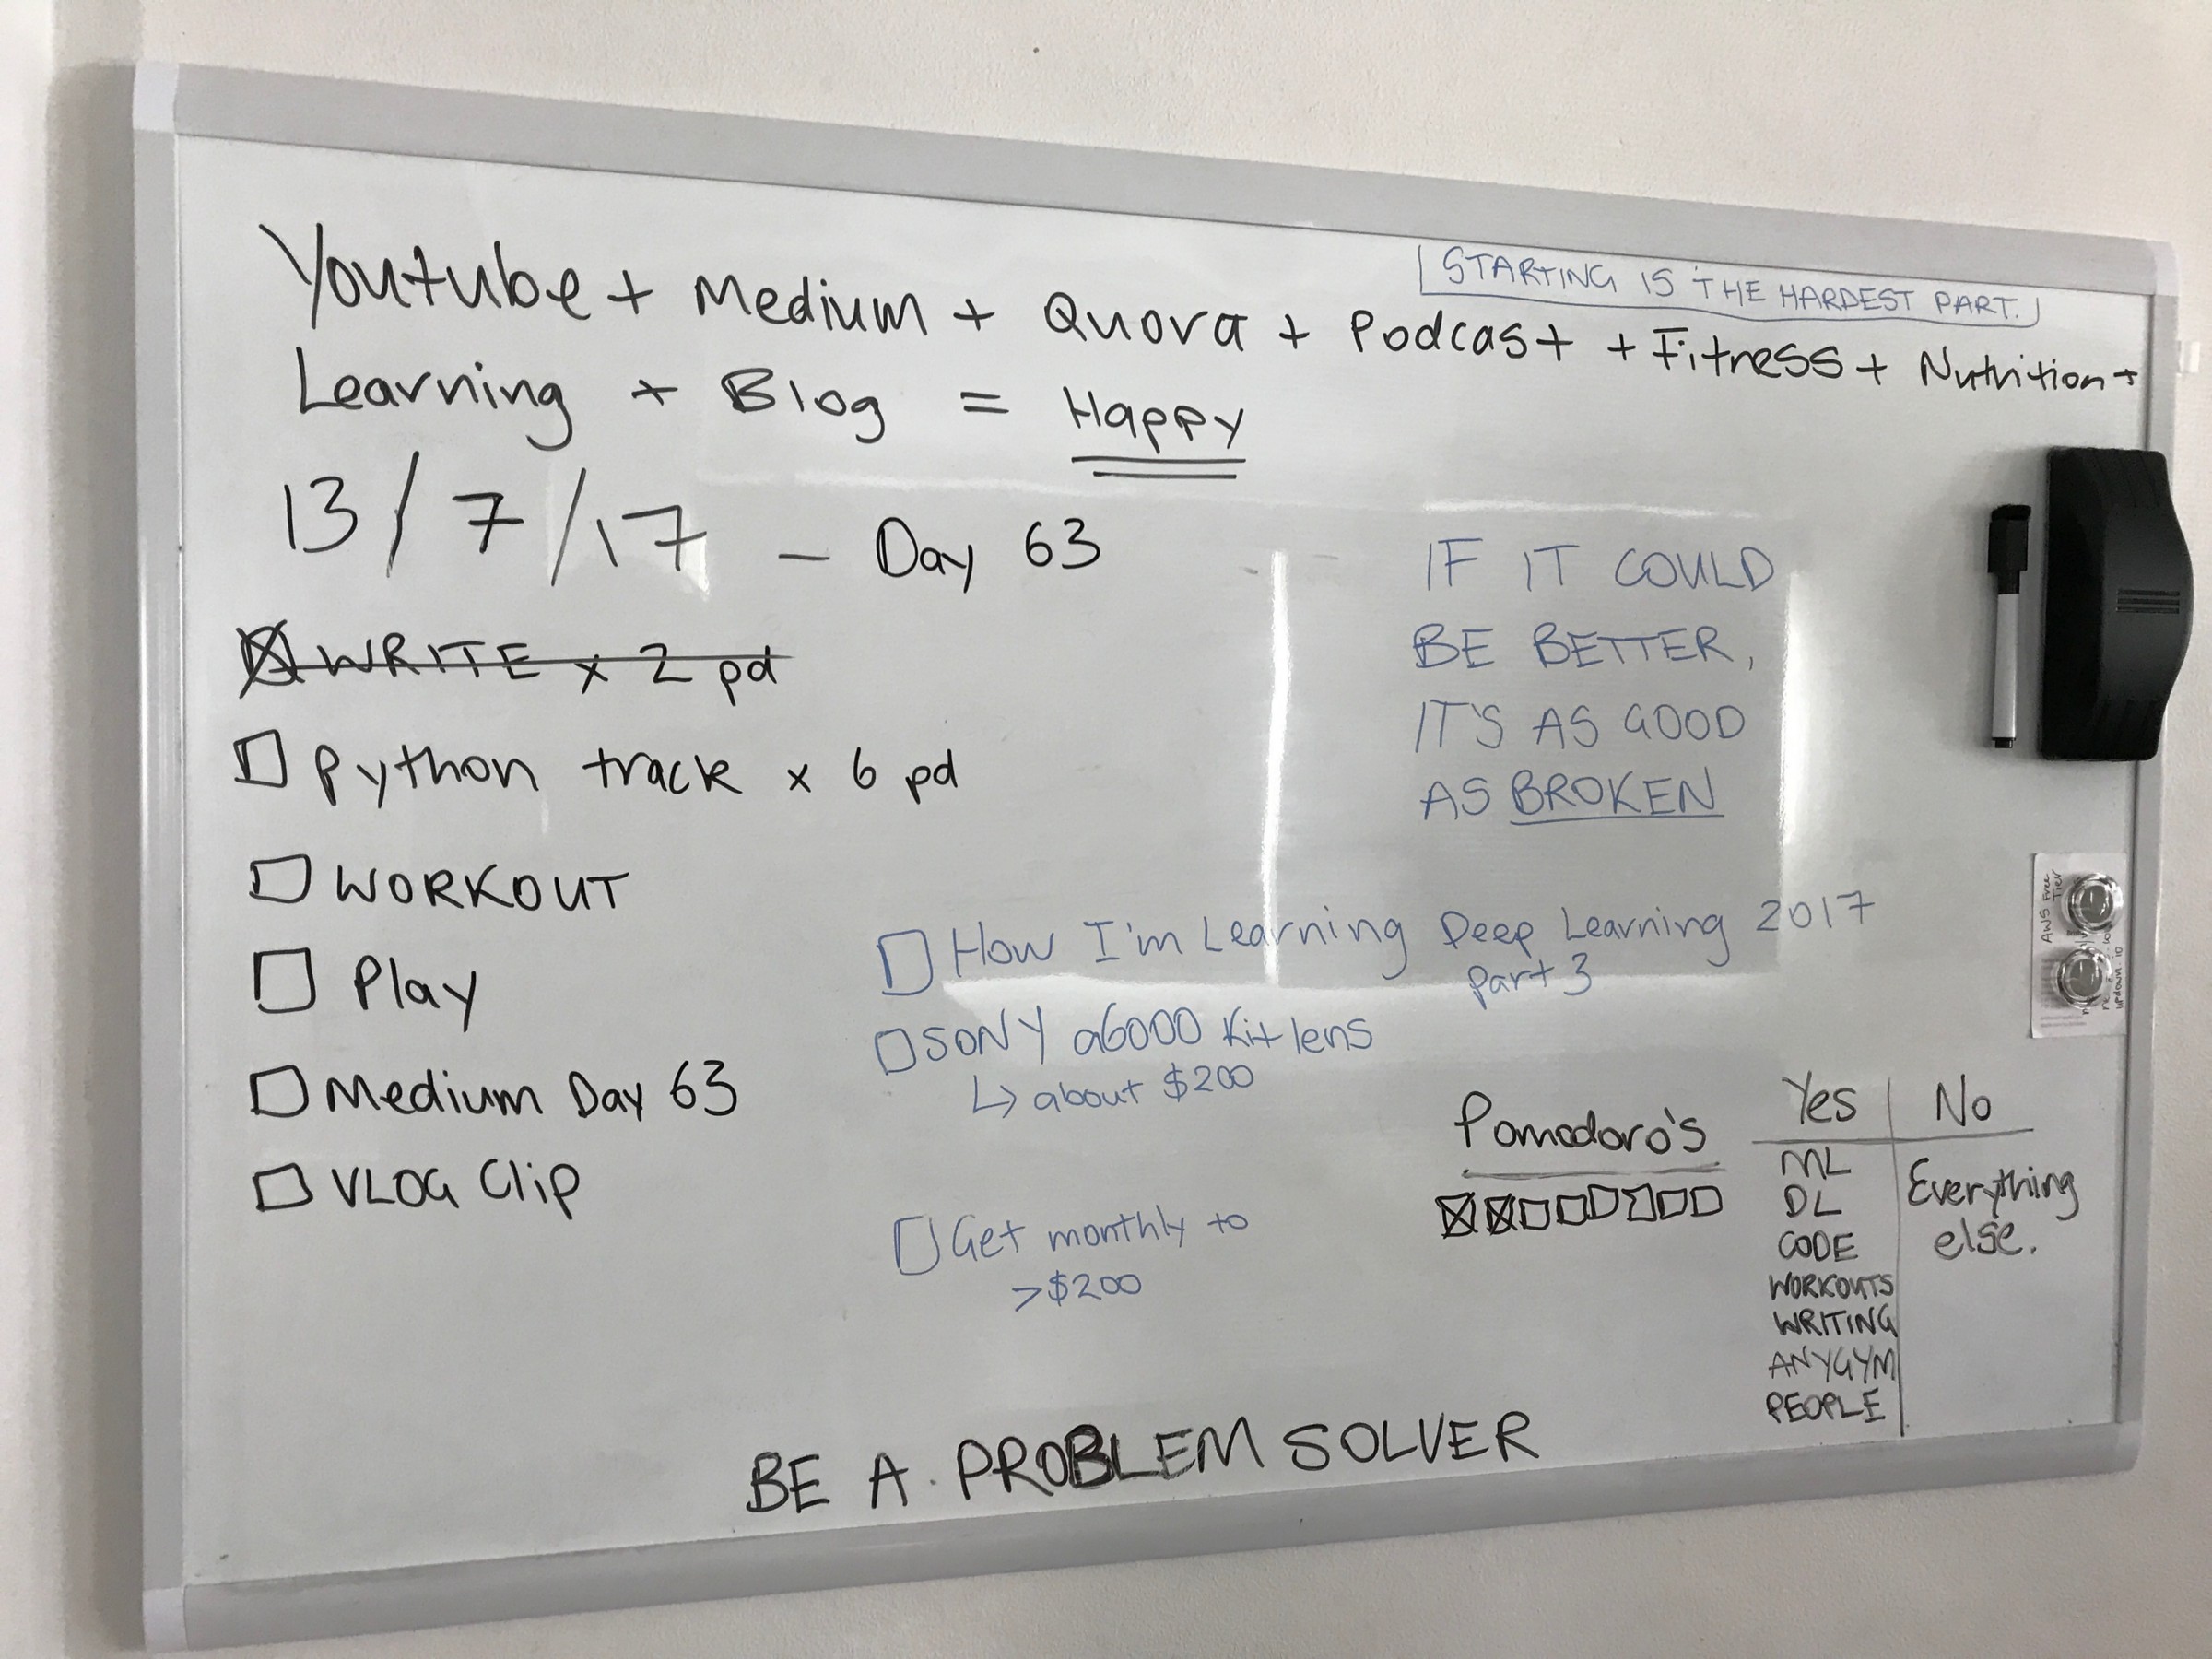 STARTING IS THE HARDEST PART.
Youtube + Medium + Quora + Podcast + Fitness + Nutrition +
Learning + Blog = Happy
13/7/17 — Day 63
WRITE x 2 pd
Python track x 6 pd
WORKOUT
Play
Medium Day 63
VLOG Clip
IF IT COULD
BE BETTER,
IT'S AS GOOD
AS BROKEN
How I'm Learning Deep Learning 2017
Part 3
SONY a6000 Kit lens
↳ about $200
Get monthly to
>$200
Pomodoro's
Yes | No
ML
DL
CODE
WORKOUTS
WRITING
ANYGYM
PEOPLE
Everything
else.
AWS Free
Tier
BE A PROBLEM SOLVER